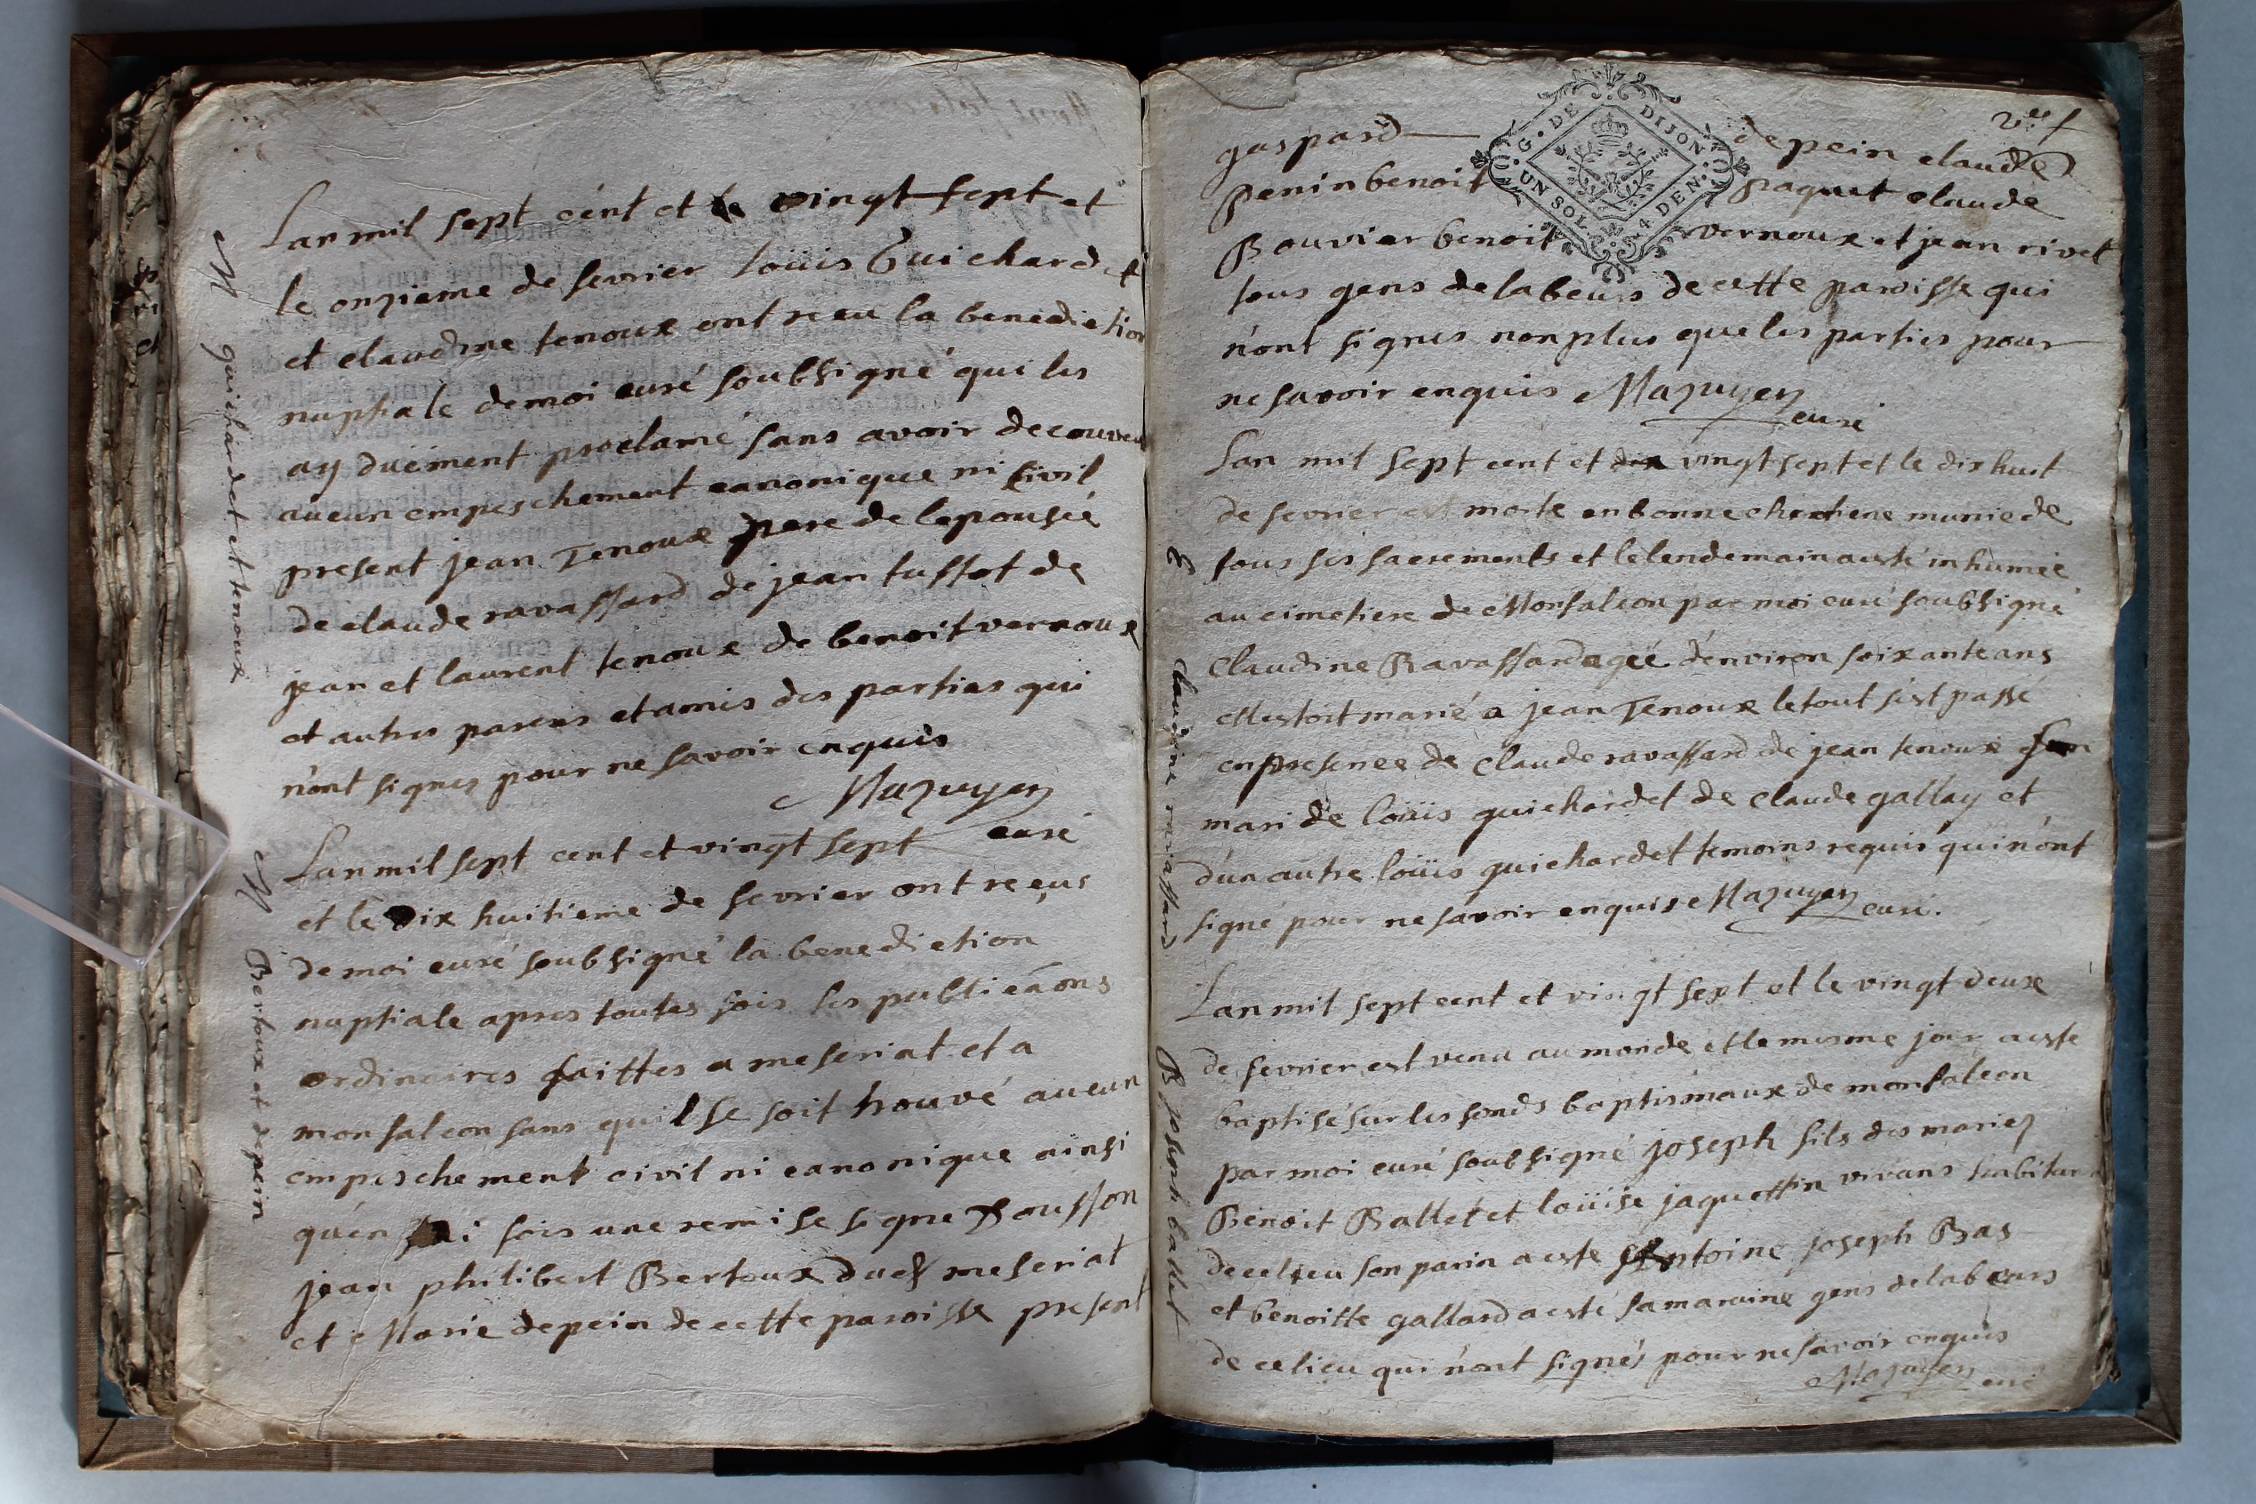 M guichardet et tenoux
Lan mil sept cent et vingt sept et
le onzieme de fevrier loüis Guichardet
et claudine tenoux ont receu la benediction
nuptiale de moi curé soubsigné qui les
ay duëment proclamé sans avoir decouvert
aucun empeschement canonique ni civil
present jean Tenoux pere de lepousée
de claude ravassard de jean tussot de
jean et laurent tenoux de benoit vernoux
et autres parens et amis des parties qui
n'ont signes pour ne savoir enquis
Mazuyer
curé
M Bertoux et depein
Lan mil sept cent et vingt sept
et le dix huitieme de fevrier ont reçus
de moi curé soubsigné la benediction
nuptiale apres toutes fois les publicãons
ordinaires faittes a meseriat et a
monfalcon sans quil se soit trouvé aucun
empeschement civil ni canonique ainsi
qu'en fait fois une remise signe Bousson
jean philibert Bertoux dud meseriat
et Marie depein de cette paroisse present
gaspard depein claude
penin benoit paquet claude
Bouvier benoit vernoux et jean rivet
tous gens de labeurs de cette paroisse qui
n'ont signes non plus que les parties pour
ne savoir enquis Mazuyer
curé
G. DE DIJON
UN SOL. 4 DEN.
E Claudine ravassard
Lan mil sept cent et vingt sept et le dix huit
de fevrier est morte en bonne chretiene munie de
tous ses sacrements et le lendemain a esté inhumée
au cimetiere de Monfalcon par moi curé soubsigné
Claudine Ravassard agée d'environ soixante ans
elle estoit marié a jean Tenoux le tout s'est passé
en presence de Claude ravassard de jean tenoux son
mari de loüis guichardet de Claude gallay et
d'un autre loüis guichardet temoins requis qui n'ont
signé pour ne savoir enquis Mazuyer curé.
B joseph ballet
Lan mil sept cent et vingt sept et le vingt deux
de fevrier est venu au monde et le mesme jour a este
baptisé sur les fonds baptismaux de monfalcon
par moi curé soubsigné joseph fils des mariez
Benoit Ballet et loüise jaquettin vivans habitans
de ce lieu son parin a este Antoine joseph Bas
et benoitte gallard a esté sa maraine gens de labeurs
de ce lieu qui n'ont signés pour ne savoir enquis
Mazuyer curé